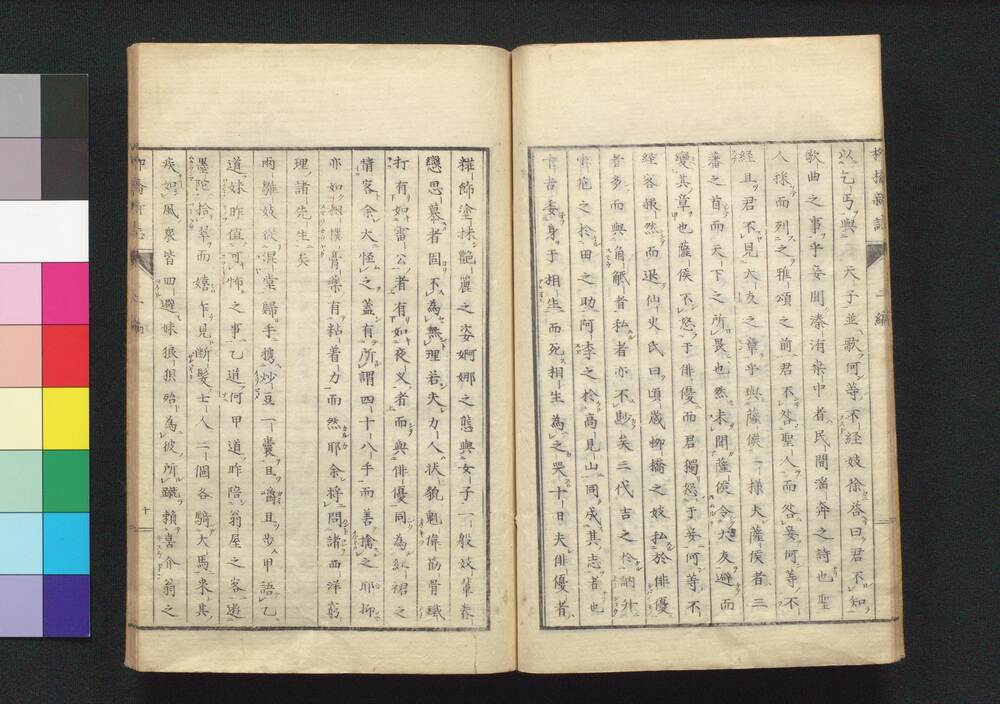 以乞丐與 天子並歌何等不経妓徐答曰君不知
歌曲之事乎妾聞溱洧桑中者民間淫奔之詩也聖
人採而列之雅頌之前君不咎聖人而咎妾何等不
経且君不見大友之章乎與薩侯一様夫薩侯者三
藩之首而天下之所畏也然未聞薩侯令大友避而
変其章也薩侯不怒于俳優而君獨怒于妾何等不
経客赧然而退仙史氏曰頃歳柳橋之妓私於俳優
者多而與角觝者私者亦不尠矣三代吉之於訥升
之於田之助阿李之於高見山同成其志者也
委身于相生而死相生為之哭十日夫俳優者
粧飾塗抹艶麗之姿婀娜之態與女子一般妓輩眷
戀思慕者固不為無理若夫力人状貌魁偉筋骨
打有如雷公者有如夜叉者而與俳優同為紅裙之
情客余大怪之蓋有所謂四十八手而善擒之耶抑
亦如 膏藥有粘着力而然耶余将問諸西洋窮
理諸先生矣
両雛妓従混堂歸手携炒豆一嚢且嚼且歩甲語乙
道妹昨値可怖之事乙道何甲道昨陪翁屋之客遊
墨陀拾翠而嬉乍見断髪士人二個各騎大馬来其
疾如風衆皆四避妹狼狽殆為彼所蹴頼喜介翁之
十